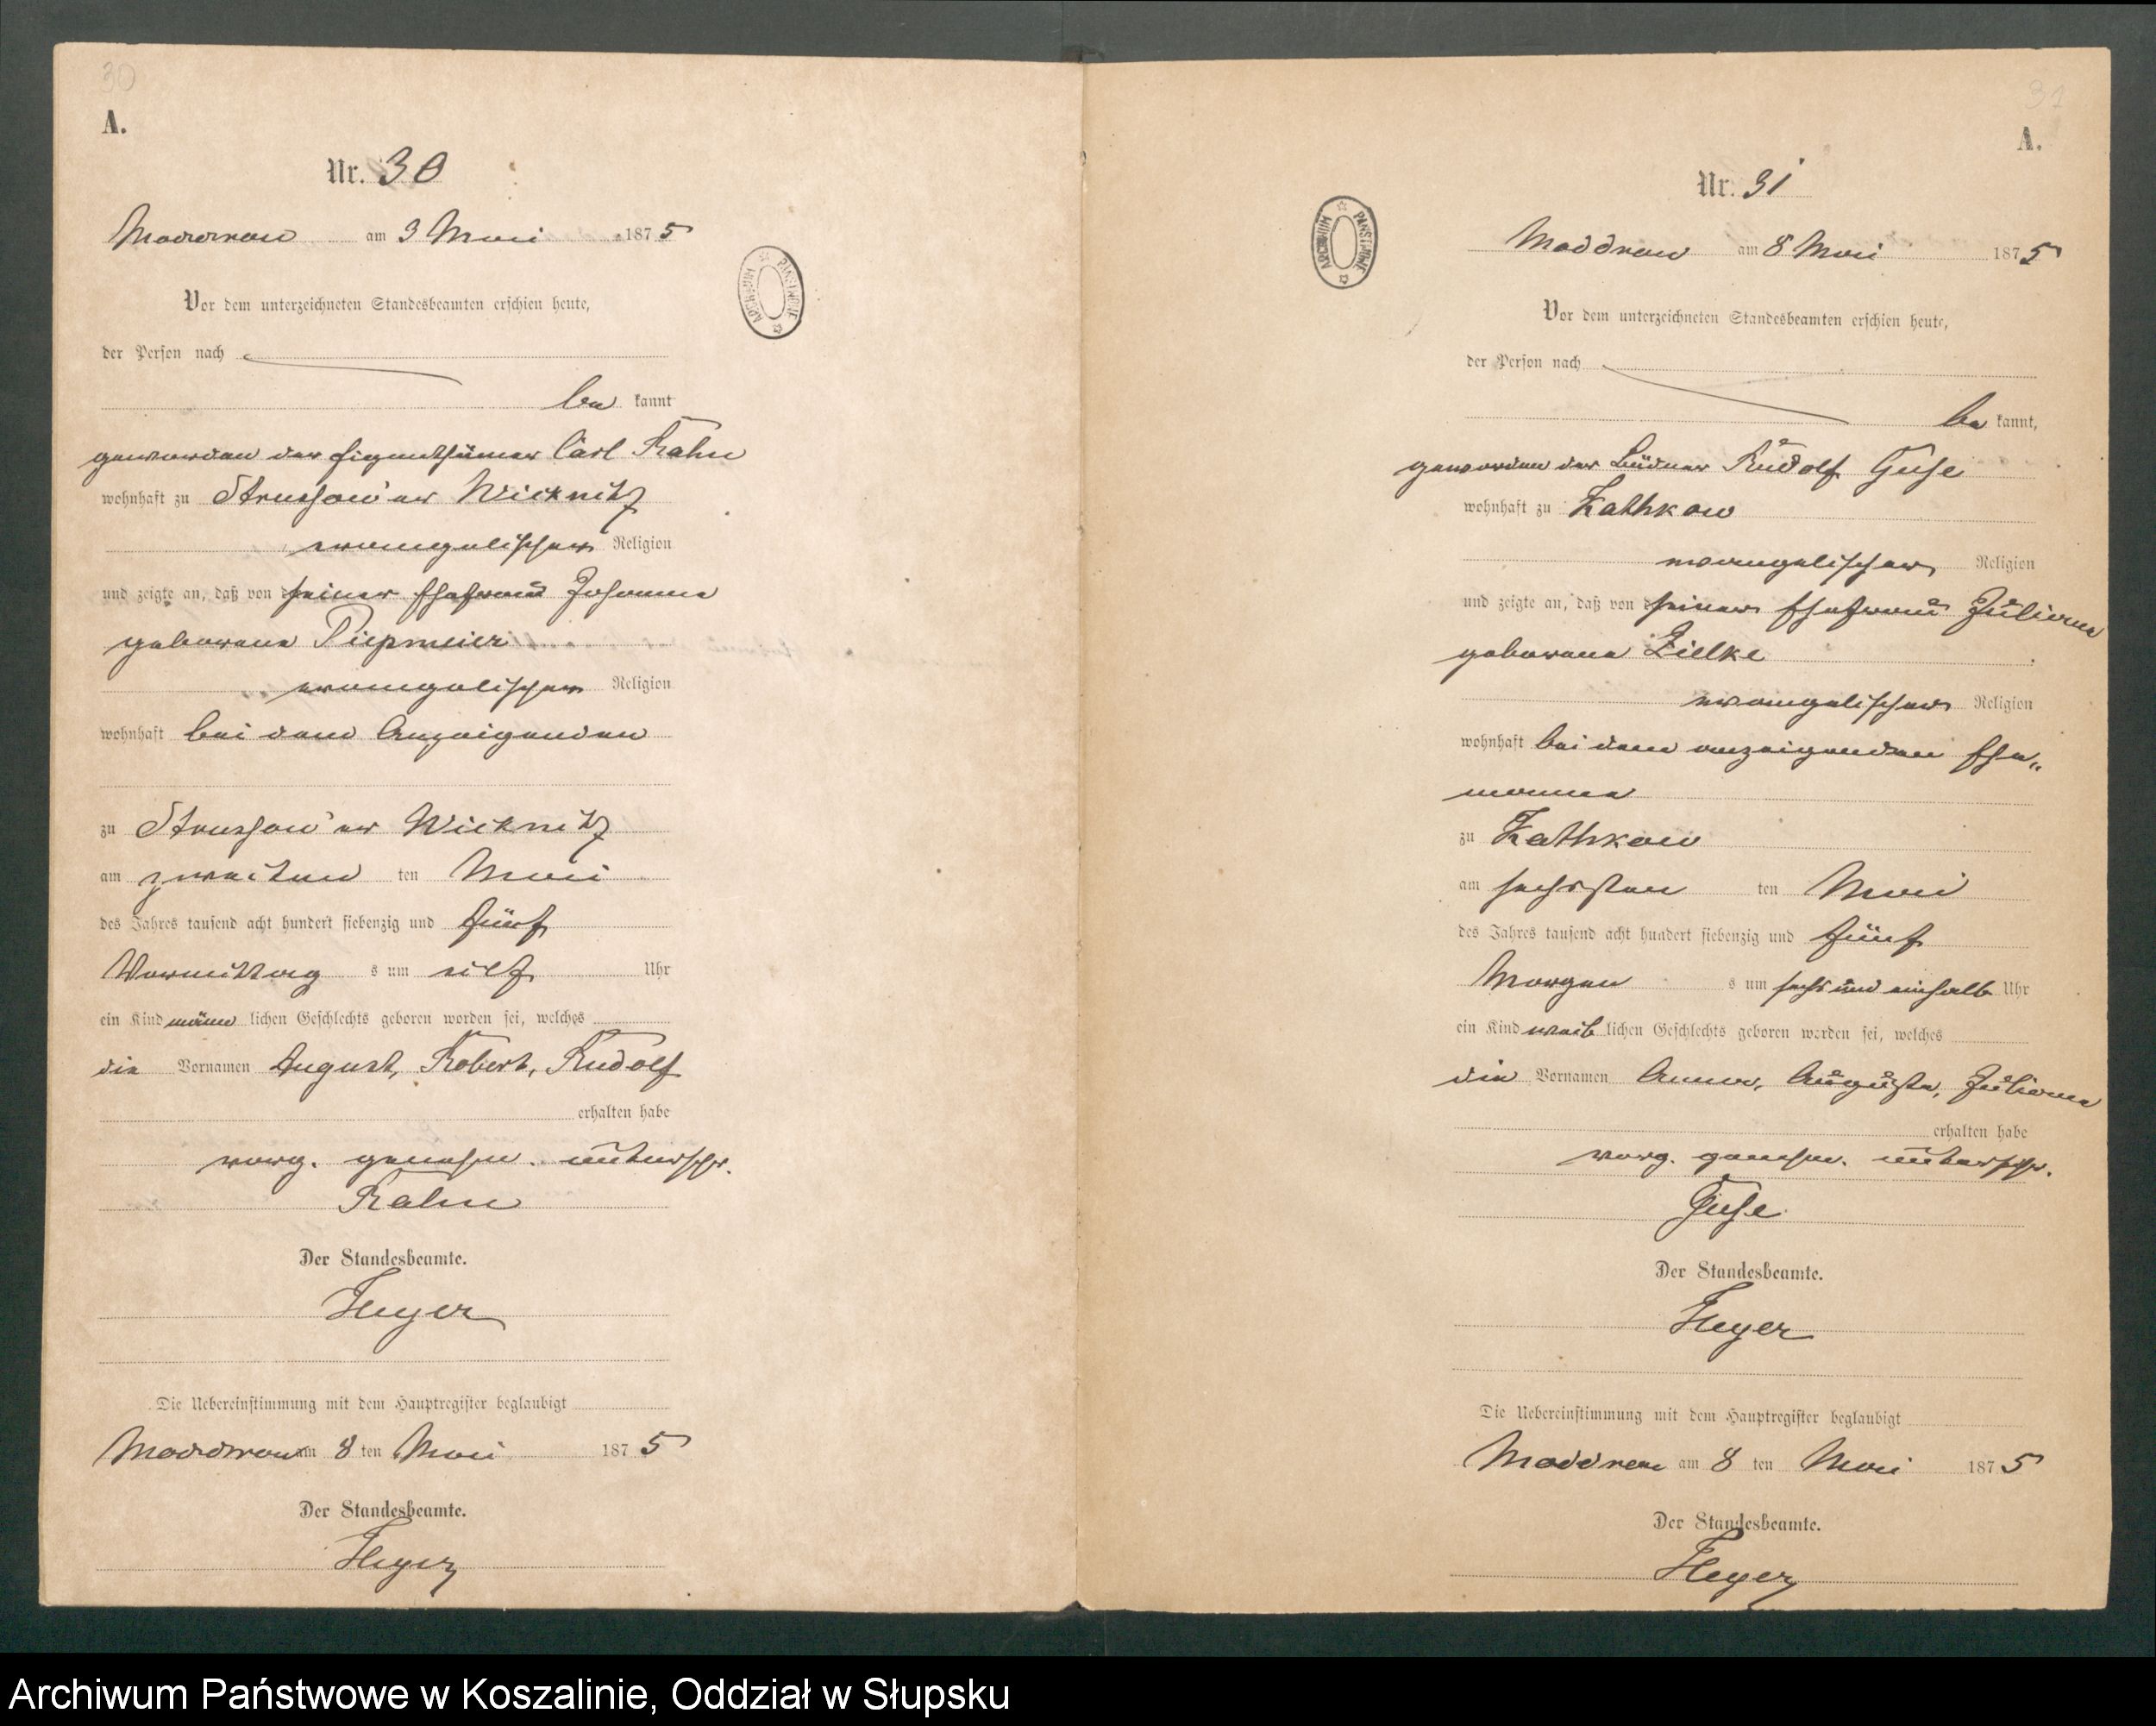 30
A.
Nr. 30
Moddrow am 3 Mai 1875
Vor dem unterzeichneten Standesbeamten erschien heute,
der Person nach
be kannt
geworden der Eigenthümer Carl Rahn
wohnhaft zu Strussow'er Wicknitz
evangelischer Religion
und zeigte an, daß von seiner Ehefrau Johanne
geborene Piepmeier
evangelischer Religion
wohnhaft bei dem Anzeigenden
zu Strussow'er Wicknitz
am zweiten ten Mai
des Jahres tausend acht hundert siebenzig und fünf
Vormittag s um elf Uhr
ein Kind männ lichen Geschlechts geboren worden sei, welches
die Vornamen August, Robert, Rudolf
erhalten habe
vorg. genehm. unterschr.
Rahn
Der Standesbeamte.
Heyer
Die Uebereinstimmung mit dem Hauptregister beglaubigt
Moddrow am 8 ten Mai 1875
Der Standesbeamte.
Heyer
ARCHIWUM PAŃSTWOWE
31
A.
Nr. 31
Moddrow am 8 Mai 1875
Vor dem unterzeichneten Standesbeamten erschien heute,
der Person nach
be kannt,
geworden der Büdner Rudolf Guse
wohnhaft zu Kathkow
evangelischer Religion
und zeigte an, daß von seiner Ehefrau Juliane
geborene Zielke
evangelischer Religion
wohnhaft bei dem anzeigenden Ehe„
manne
zu Kathkow
am sechsten ten Mai
des Jahres tausend acht hundert siebenzig und fünf
Morgen s um sechs und einhalb Uhr
ein Kind weib lichen Geschlechts geboren worden sei, welches
die Vornamen Anna, Auguste, Juliane
erhalten habe
vorg. genehm. unterschr.
Guse
Der Standesbeamte.
Heyer
Die Uebereinstimmung mit dem Hauptregister beglaubigt
Moddrow am 8 ten Mai 1875
Der Standesbeamte.
Heyer
ARCHIWUM PAŃSTWOWE
Archiwum Państwowe w Koszalinie, Oddział w Słupsku